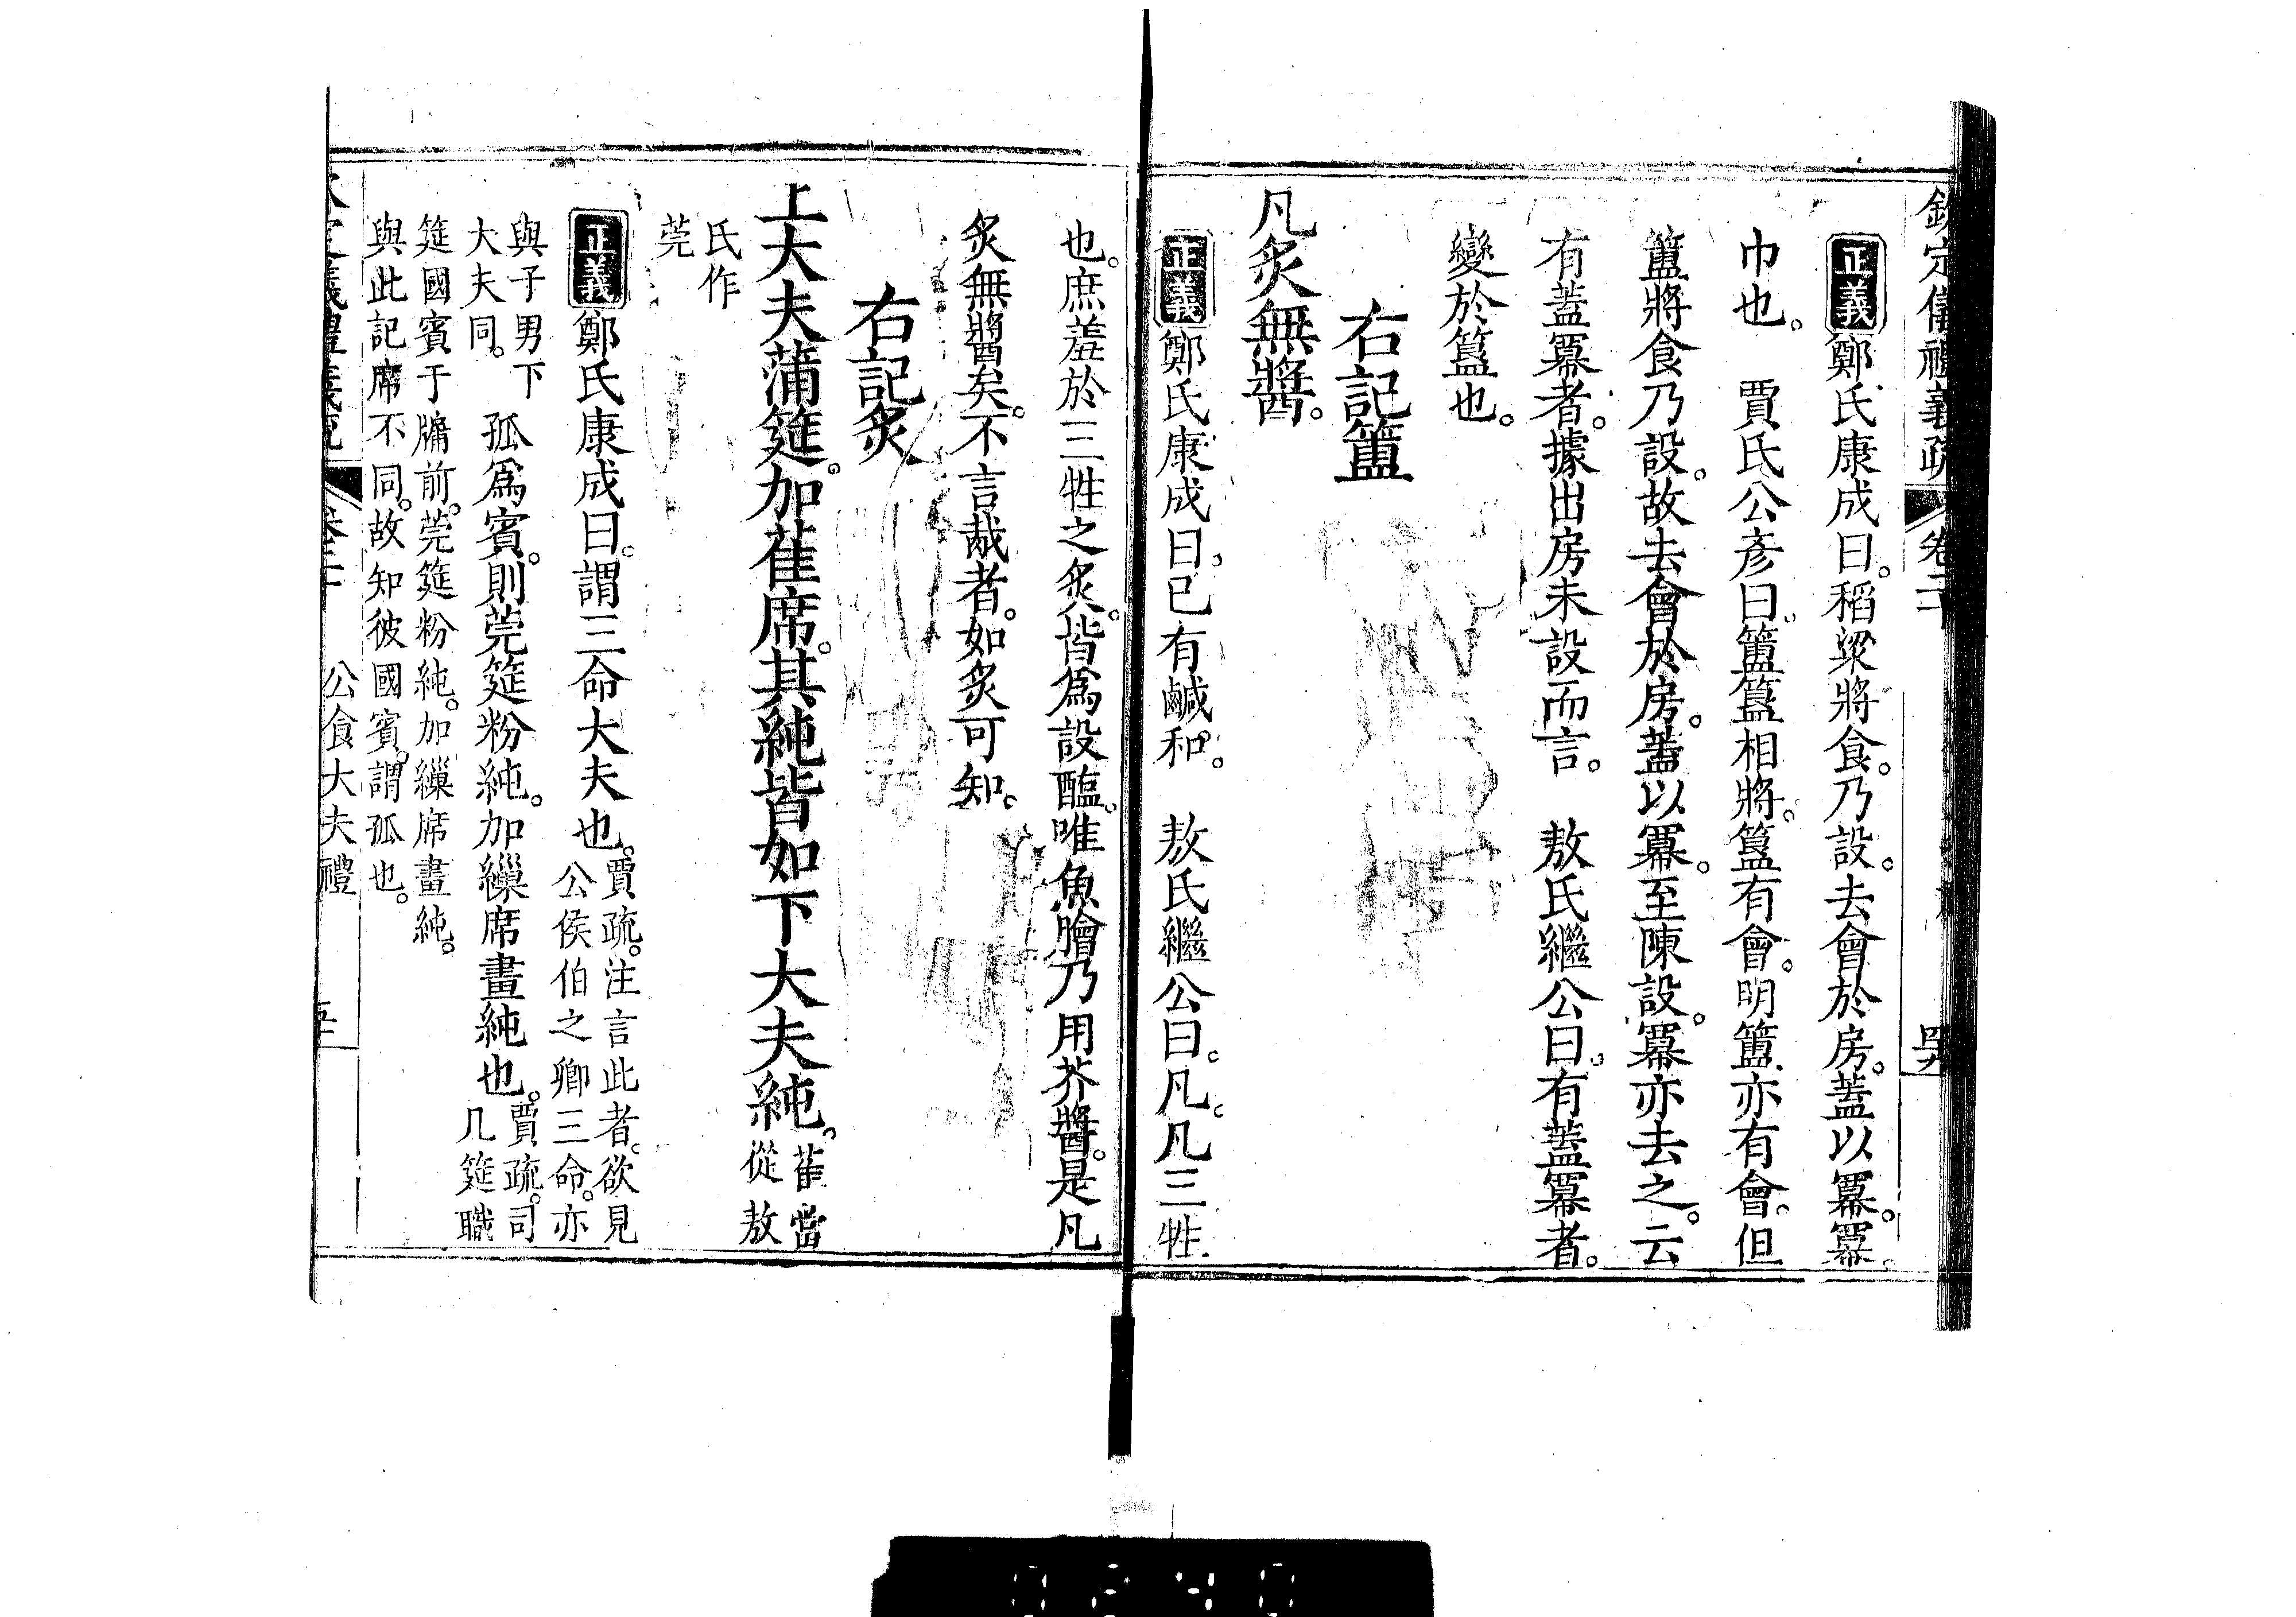 欽定儀禮義疏 卷二十
正義鄭氏康成曰。稻粱將食。乃設。去會於房。蓋以冪。冪。
巾也。 賈氏公彥曰。簠簋相將。簋有會。明簠亦有會。但
簠將食乃設。故去會於房。蓋以冪。至陳設。冪亦去之。云
有蓋冪者。據出房未設而言。 敖氏繼公曰。有蓋冪者。
變於簋也。
右記簠
凡炙無醬。
正義鄭氏康成曰。已有鹹和。 敖氏繼公曰。凡。凡三牲
也。庶羞於三牲之炙。皆爲設醢。唯魚膾乃用芥醬。是凡
炙無醬矣。不言胾者。如炙可知。
右記炙
上大夫蒲筵。加萑席。其純皆如下大夫純。萑當
從敖
氏作
莞
正義鄭氏康成曰。謂三命大夫也。賈疏。注言此者。欲見
公侯伯之卿三命。亦
與子男下
大夫同。 孤爲賓。則莞筵粉純。加繅席畫純也。賈疏。司
几筵職
筵國賓于牖前。莞筵粉純。加繅席畫純。
與此記席不同。故知彼國賓。謂孤也。
公食大夫禮